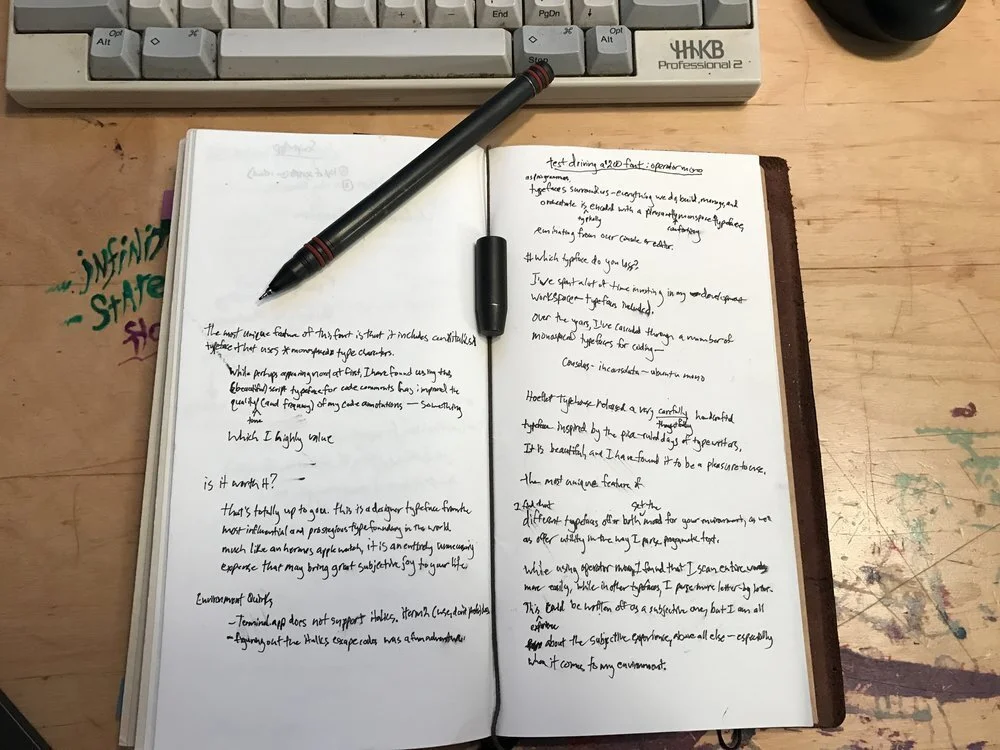 +
-
End
PgDn
Alt
Opt
◇
⌘
◇
⌘
Stop
Alt
Opt
HHKB
Professional 2
infinit
State
The most unique feature of this font is that it includes
typeface that uses type characters.
While perhaps appearing at first, I have found using this
(beautiful) script typeface for code comments has improved the
quality (and frequency) of my code annotations — something
time
which I highly value
is it worth it?
That's totally up to you. this is a designer typeface from the
most influential and prestigious type foundry in the world
much like an hermes apple watch, it is an entirely unnecessary
expense that may bring great subjective joy to your life
Environment Quirks
- Terminal.app does not support italics. iterm2 (use,
- figuring out the italics escape codes was a fun adventure
test driving a $200 font: operator mono
as programmers
typefaces surround us - everything we do build, manage, and
orchestrate is encoded with a monospace typefaces,
typically
comforting
eminating from our console or editor.
# Which typeface do you use?
I've spent a lot of time investing in my development
workspace — typefaces included.
Over the years, I've cascaded through a number of
monospaced typefaces for coding —
Consolas - inconsolata - ubuntu mono
Hoefler Typehouse released a very carefully handcrafted
thoughtfully
typeface inspired by the days of typewriters.
It is beautiful, and I have found it to be a pleasure to use.
the most unique feature of
I find that set the
different typefaces offer both mood for your environment, as well
as offer utility in the way I parse programatic text.
While using operator mono, I found that I scan entire words
more easily, while in other typefaces, I parse more letter-by-letter.
This could be written off as a subjective one, but I am all
experience
about the subjective experience, above all else — especially
when it comes to my environment.